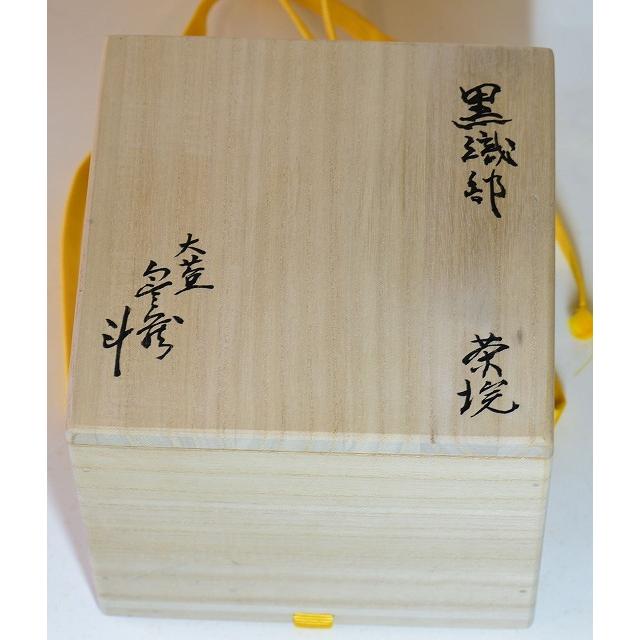 黒織部
茶垸
大萱
斗